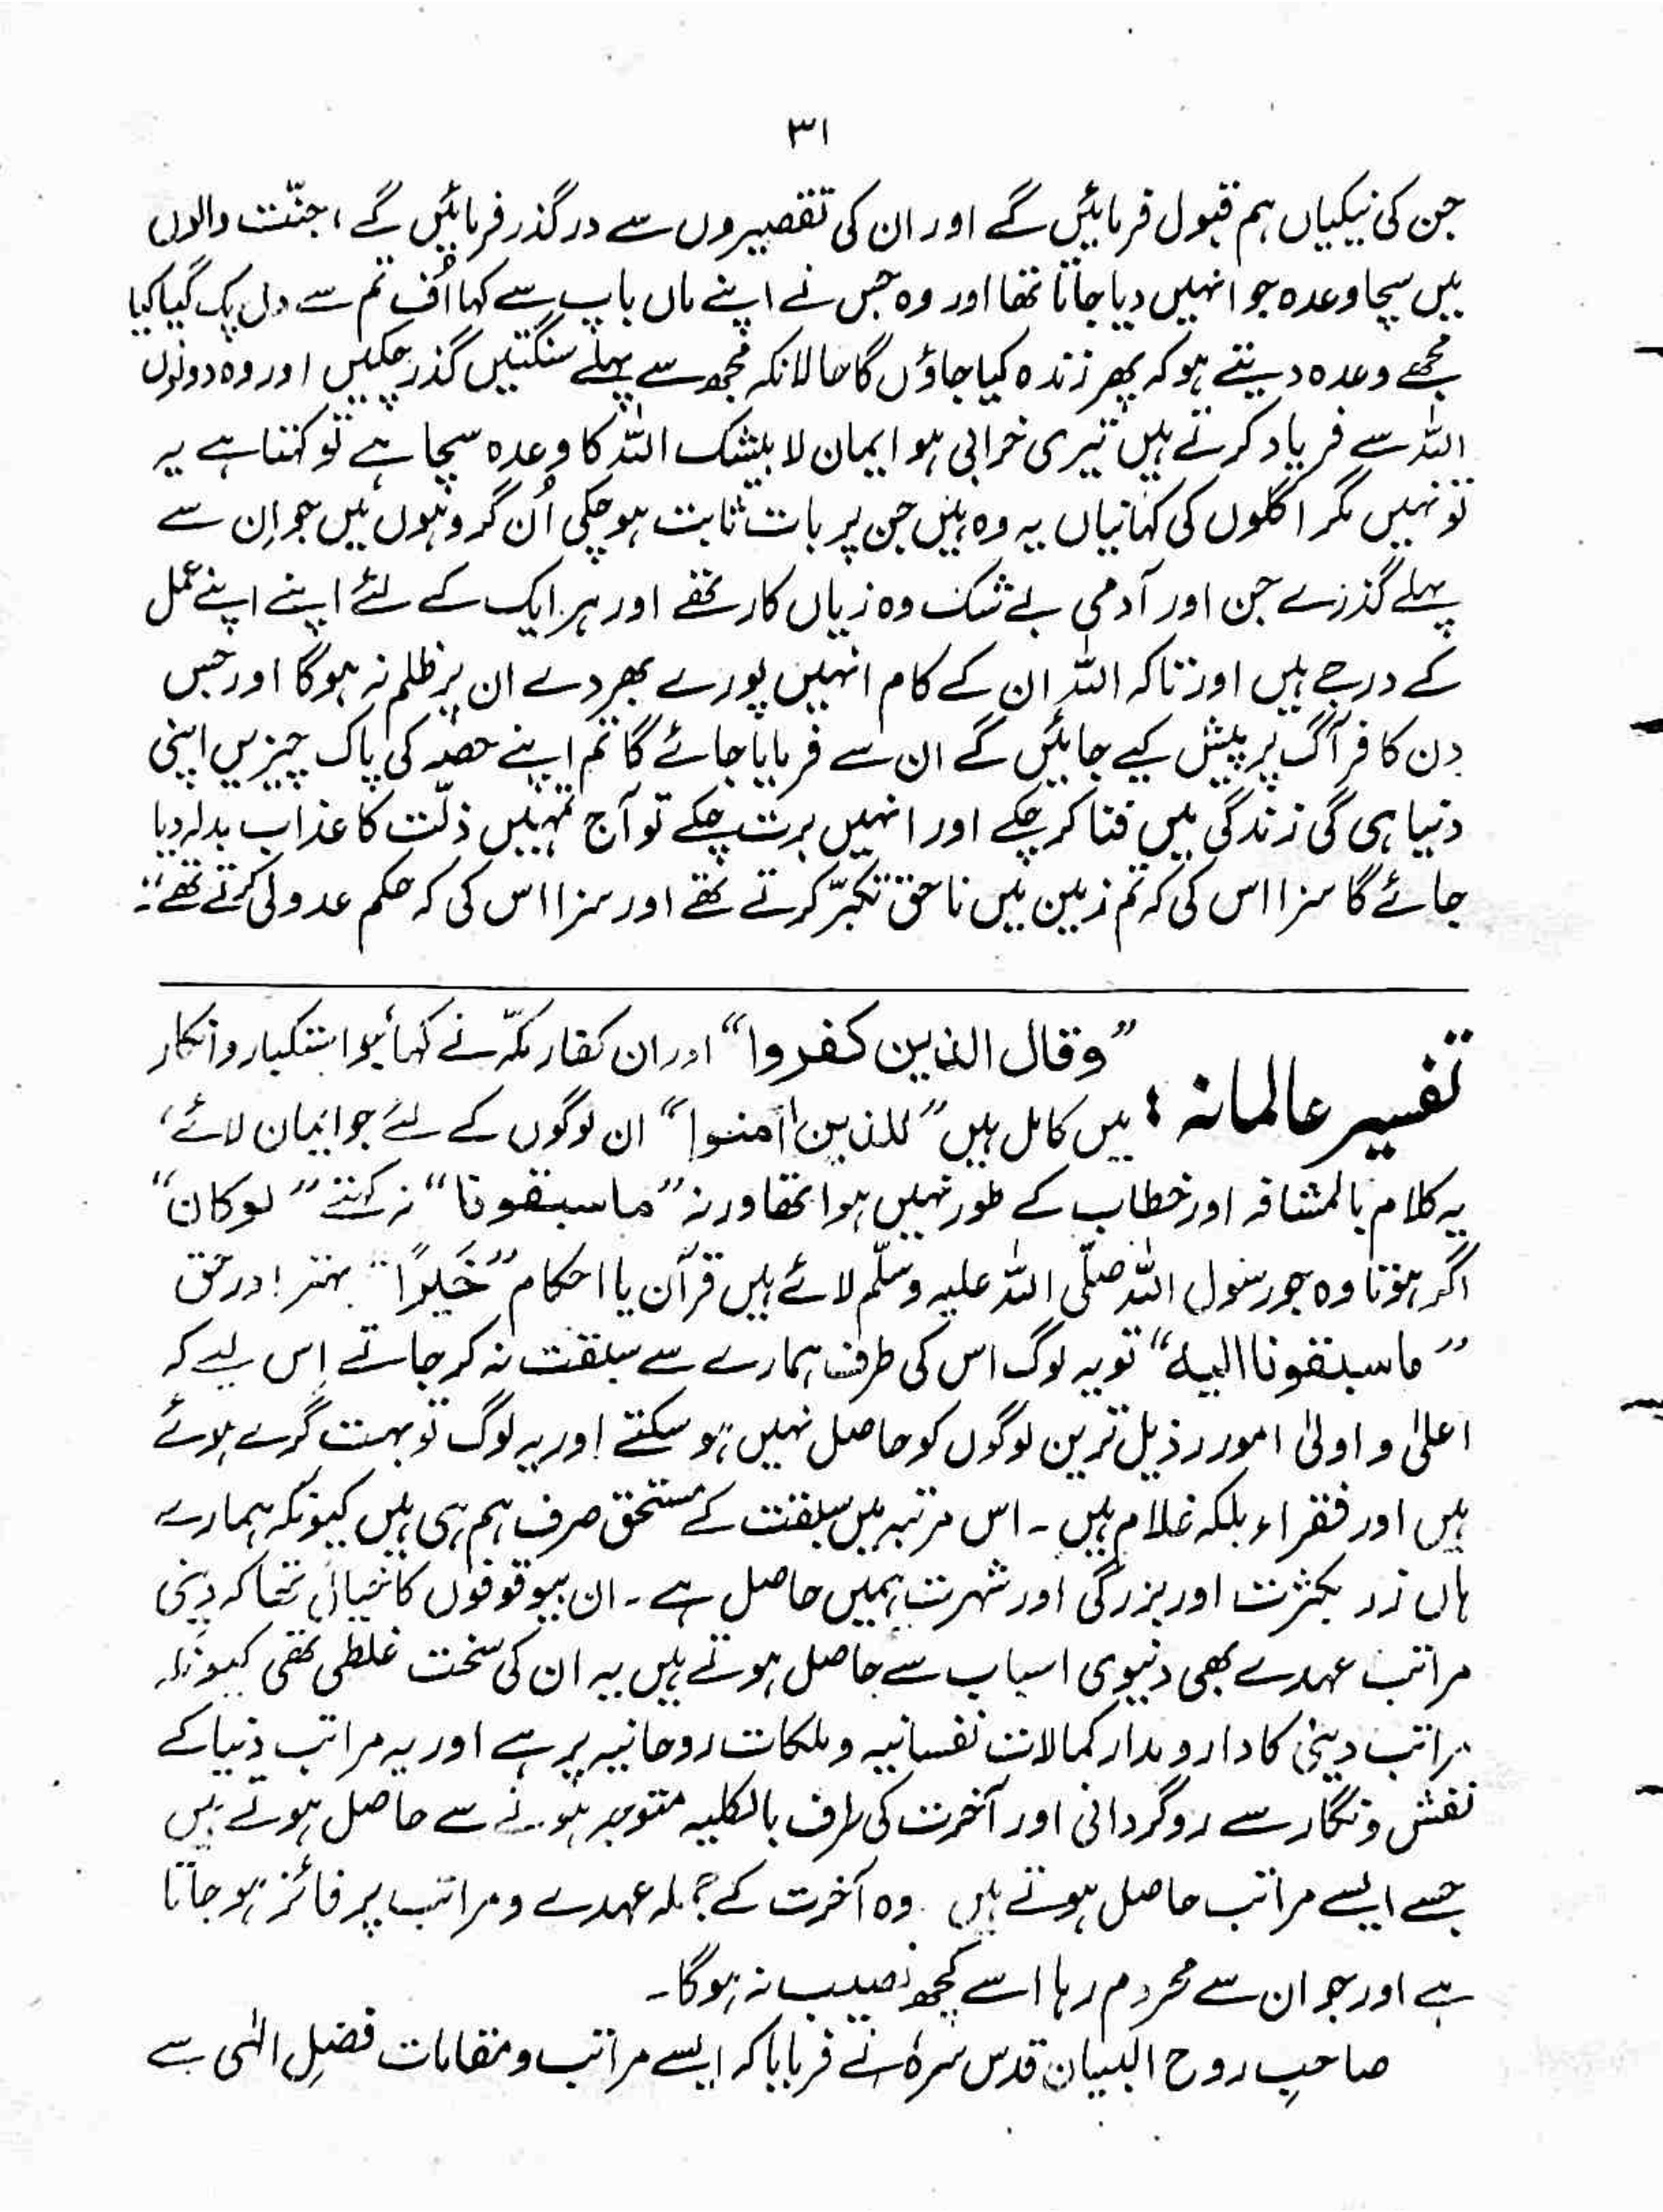 ۳۱
جن کی نیکیاں ہم قبول فرمائیں گے اور ان کی تقصیروں سے درگذر فرمائیں گے، جنّت والوں
میں سچا وعدہ جو انہیں دیا جاتا تھا اور وہ جس نے اپنے ماں باپ سے کہا اُف تم سے دل پک گیا کیا
مجھے وعدہ دیتے ہو کہ پھر زندہ کیا جاؤں گا حالانکہ مجھ سے پہلے سنگتیں گذر چکیں اور وہ دونوں
اللہ سے فریاد کرتے ہیں تیری خرابی ہو ایمان لا بیشک اللہ کا وعدہ سچا ہے تو کہتا ہے یہ
تو نہیں مگر اگلوں کی کہانیاں یہ وہ ہیں جن پر بات ثابت ہو چکی اُن گروہوں میں جو اِن سے
پہلے گذرے جن اور آدمی بے شک وہ زیاں کار تھے اور ہر ایک کے لئے اپنے اپنے عمل
کے درجے ہیں اور تاکہ اللہ ان کے کام انہیں پورے بھر دے ان پر ظلم نہ ہوگا اور جس
دن کافر آگ پر پیش کیے جائیں گے ان سے فرمایا جائے گا تم اپنے حصّہ کی پاک چیزیں اپنی
دنیا ہی گی زندگی میں فنا کر چکے اور انہیں برت چکے تو آج تمہیں ذلّت کا عذاب بدلہ دیا
جائے گا سزا اس کی کہ تم زمین میں ناحق تکبّر کرتے تھے اور سزا اس کی کہ حکم عدولی کرتے تھے۔
تفسیر عالمانہ : ”وقال الذین کفروا“ اور ان کفار مکّہ نے کہا جو استکبار و انکار
میں کامل ہیں ”للذین اٰمنوا“ ان لوگوں کے لئے جو ایمان لائے،
یہ کلام بالمشافہ اور خطاب کے طور نہیں ہوا تھا ورنہ ”ما سبقونا“ نہ کہتے ”لو کان“
اگر ہوتا وہ جو رسول اللہ صلّی اللہ علیہ وسلّم لائے ہیں قرآن یا احکام ”خَیرًا“ بہتر اور حق
”ما سبقونا الیہ“ تو یہ لوگ اس کی طرف ہمارے سے سبقت نہ کر جاتے اِس لیے کہ
اعلیٰ و اولیٰ امور رذیل ترین لوگوں کو حاصل نہیں ہو سکتے اور یہ لوگ تو بہت گرے ہوئے
ہیں اور فقراء بلکہ غلام ہیں۔ اس مرتبہ میں سبقت کے مستحق صرف ہم ہی ہیں کیونکہ ہمارے
ہاں زر بکثرت اور بزرگی اور شہرت ہمیں حاصل ہے۔ ان بیوقوفوں کا خیال تھا کہ دینی
مراتب عہدے بھی دنیوی اسباب سے حاصل ہوتے ہیں یہ ان کی سخت غلطی تھی کیونکہ
مراتب دینی کا دار و مدار کمالات نفسانیہ و ملکات روحانیہ پر ہے اور یہ مراتب دنیا کے
نقش و نگار سے روگردانی اور آخرت کی طرف بالکلیہ متوجہ ہونے سے حاصل ہوتے ہیں
جسے ایسے مراتب حاصل ہوتے ہیں وہ آخرت کے جملہ عہدے و مراتب پر فائز ہو جاتا
ہے اور جو ان سے محروم رہا اسے کچھ نصیب نہ ہوگا۔
صاحبِ روح البیان قدس سرہٗ نے فرمایا کہ ایسے مراتب و مقامات فضلِ الٰہی سے